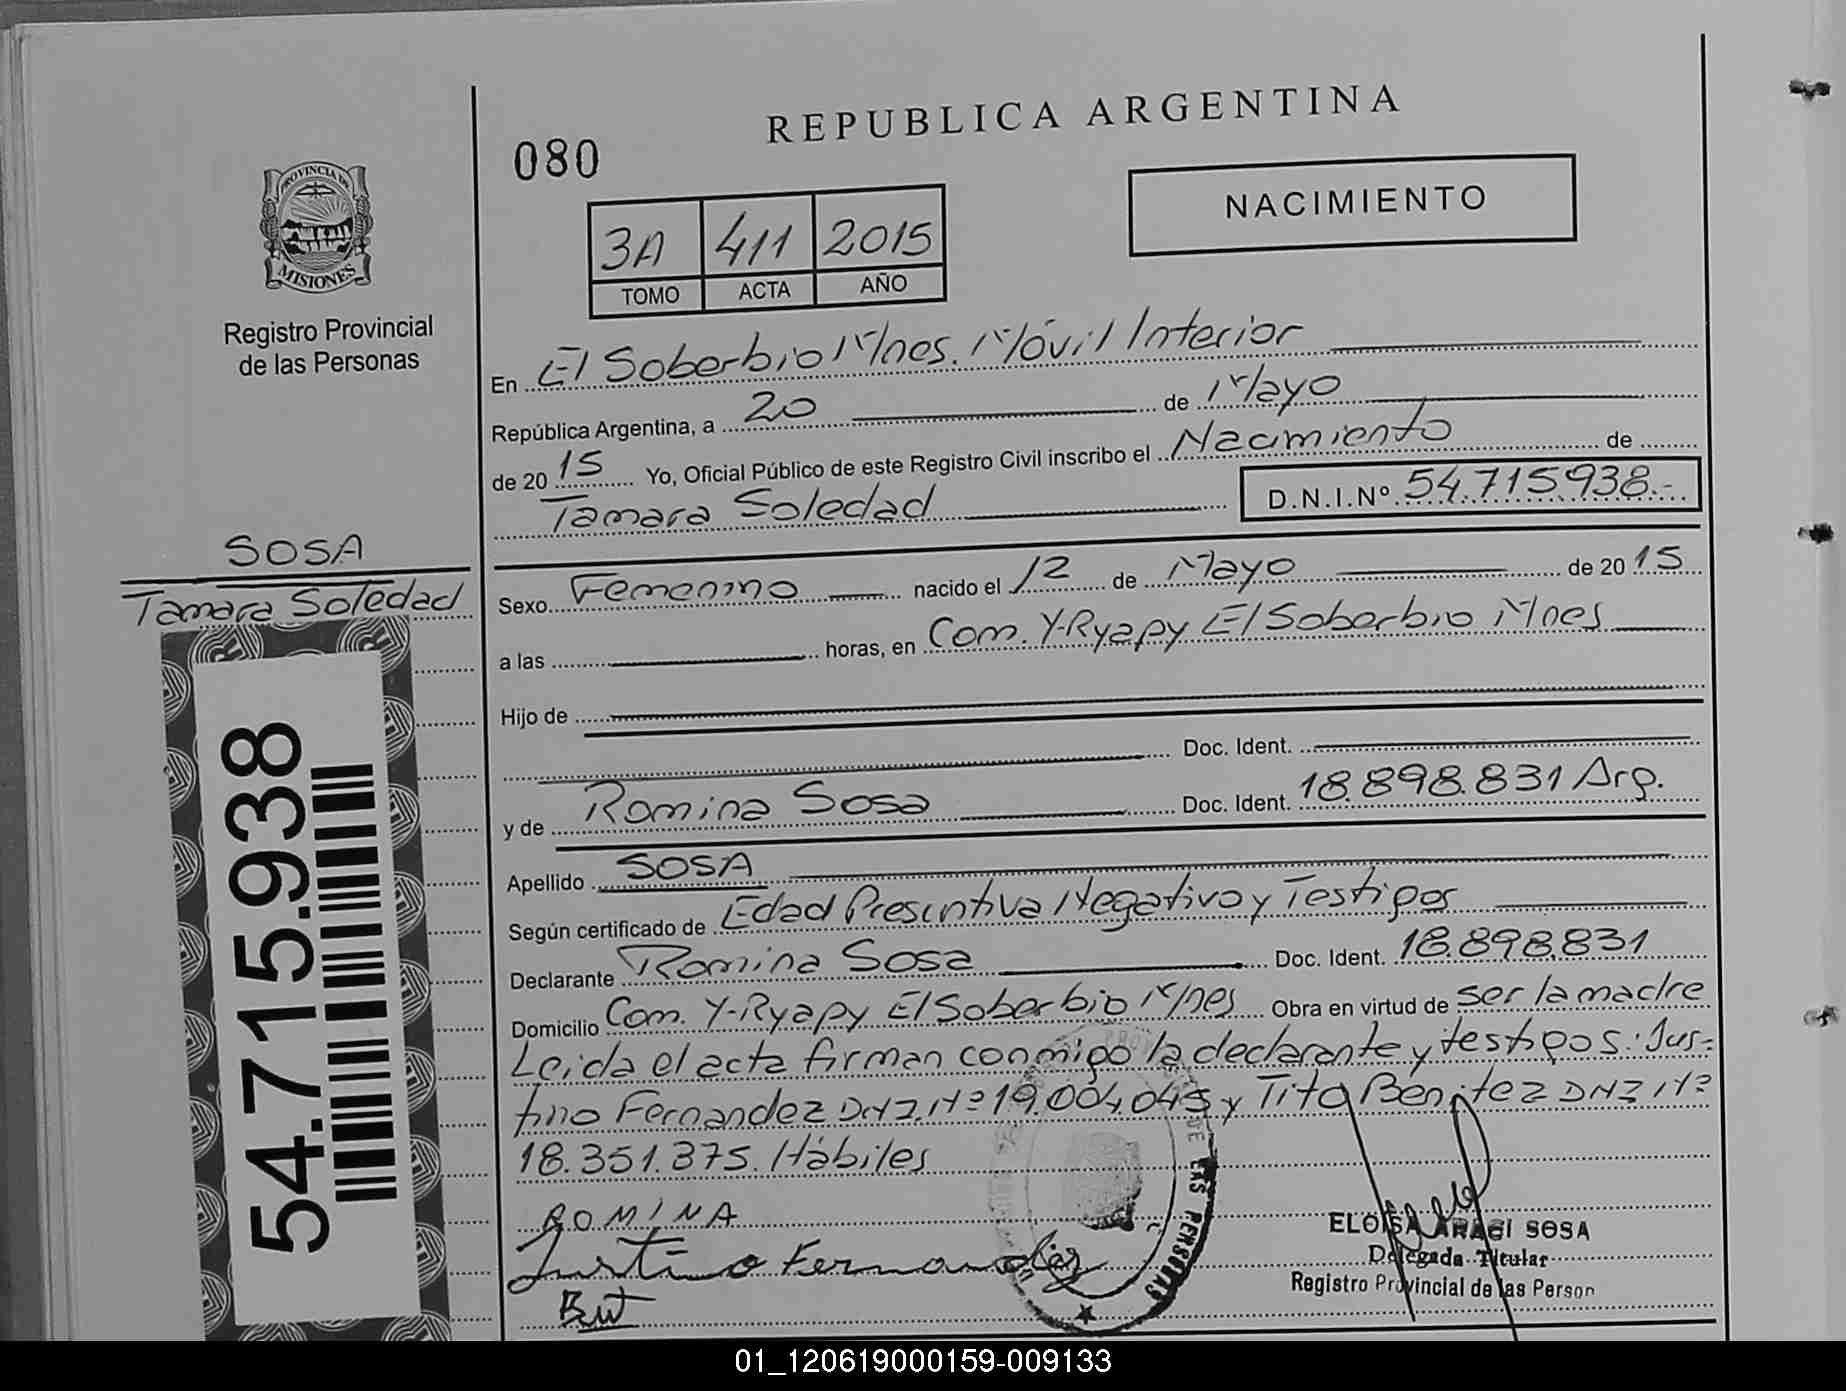 REPUBLICA ARGENTINA
080
NACIMIENTO
3A 411 2015
TOMO ACTA AÑO
PROVINCIA DE
MISIONES
Registro Provincial
de las Personas
En El Soberbio Mnes. Móvil Interior
República Argentina, a 20 de Mayo
de 2015 Yo, Oficial Público de este Registro Civil inscribo el Nacimiento de
Tamara Soledad D.N.I.Nº 54.715938.-
SOSA
Tamara Soledad
54.715.938
Sexo Femenino nacido el 12 de Mayo de 2015
a las horas, en Com. Y-Ryapy El Soberbio Mnes
Hijo de
Doc. Ident.
y de Romina Sosa Doc. Ident. 18.898.831 Arg.
Apellido SOSA
Según certificado de Edad Presuntiva Negativo y Testigos
Declarante Romina Sosa Doc. Ident. 18.898.831
Domicilio Com. Y-Ryapy El Soberbio Mnes Obra en virtud de ser la madre
Leida el acta firman conmigo la declarante y testigos: Jus-
tino Fernandez DNI.Nº 19.004.045 y Tito Benitez DNI Nº
18.351.375. Hábiles
ROMINA
Justino Fernandez
DE LAS PERSONAS
ELOISA ARAGI SOSA
Delegada Titular
Registro Provincial de las Person
01_120619000159-009133